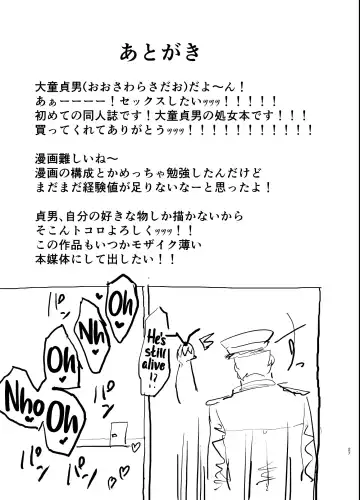 あとがき
大童貞男(おおさわらさだお)だよ～ん！
あぁーーーー！セックスしたいｯｯｯ！！！！！
初めての同人誌です！大童貞男の処女本です！！！
買ってくれてありがとうｯｯｯ！！！！！！！！！！！！
漫画難しいね～
漫画の構成とかめっちゃ勉強したんだけど
まだまだ経験値が足りないなーと思ったよ！
貞男、自分の好きな物しか描かないから
そこんトコロよろしくｯｯｯ！！
この作品もいつかモザイク薄い
本媒体にして出したい！！
すっ
He's
still
alive
!?
パン
Oh
Nh
Oh
Oh
Nho
パン
パン
パン